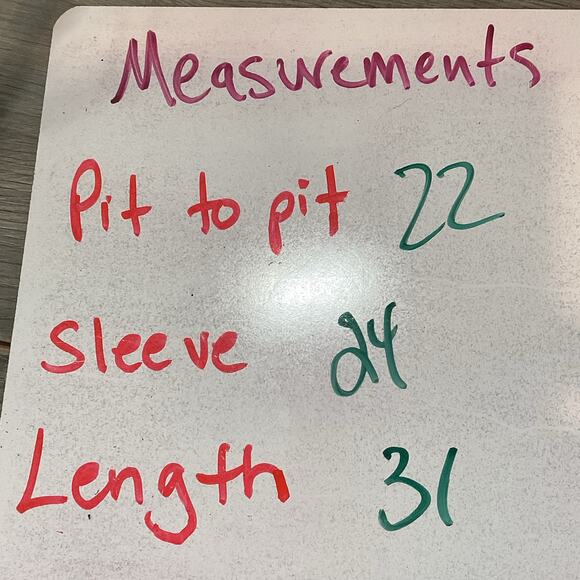 Measurements
Pit to pit 22
Sleeve 24
Length 31